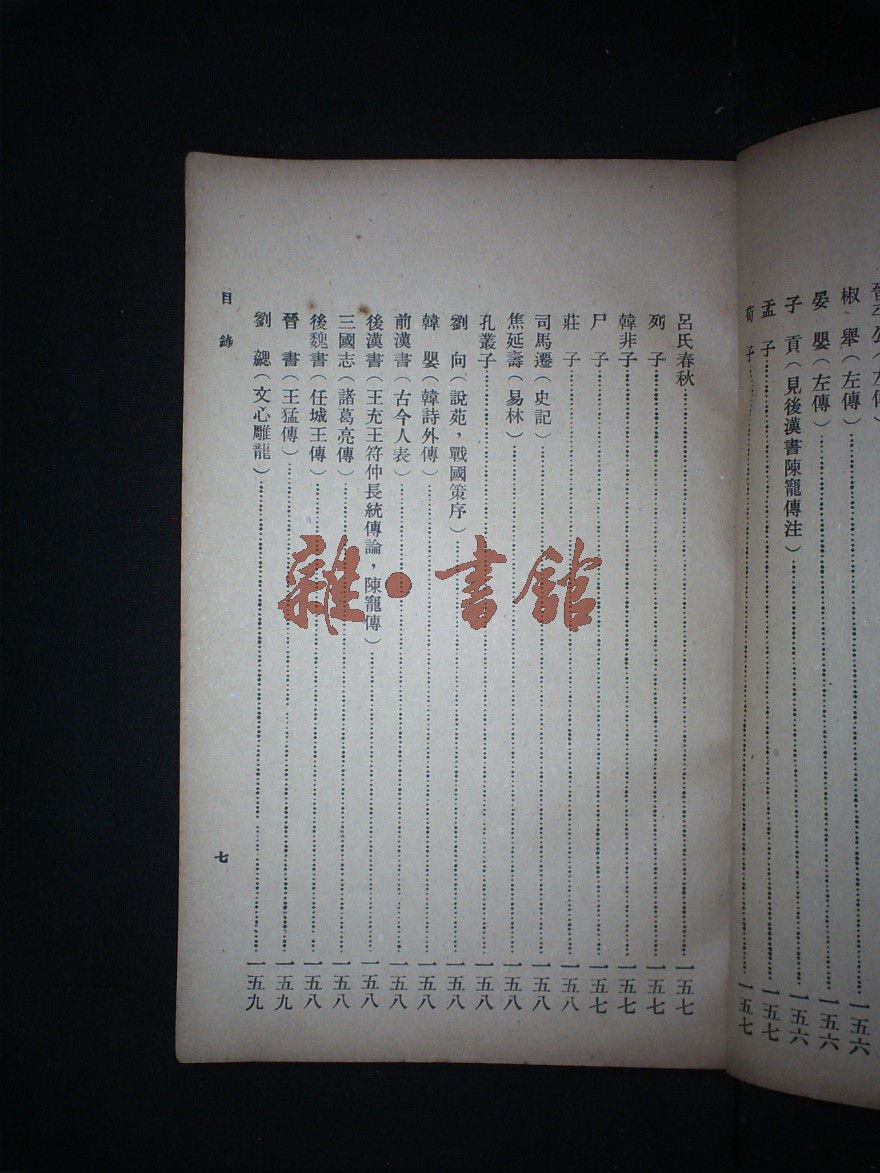 椒　舉（左傳）……一五六
晏　嬰（左傳）……一五六
子　貢（見後漢書陳寵傳注）……一五六
孟　子……一五七
荀　子……一五七
呂氏春秋……一五七
列　子……一五七
韓非子……一五七
尸　子……一五七
莊　子……一五八
司馬遷（史記）……一五八
焦延壽（易林）……一五八
孔叢子……一五八
劉　向（說苑，戰國策序）……一五八
韓　嬰（韓詩外傳）……一五八
前漢書（古今人表）……一五八
後漢書（王充王符仲長統傳論，陳寵傳）……一五八
三國志（諸葛亮傳）……一五八
後魏書（任城王傳）……一五八
晉　書（王猛傳）……一五九
劉　勰（文心雕龍）……一五九
目錄
七
雜·書館